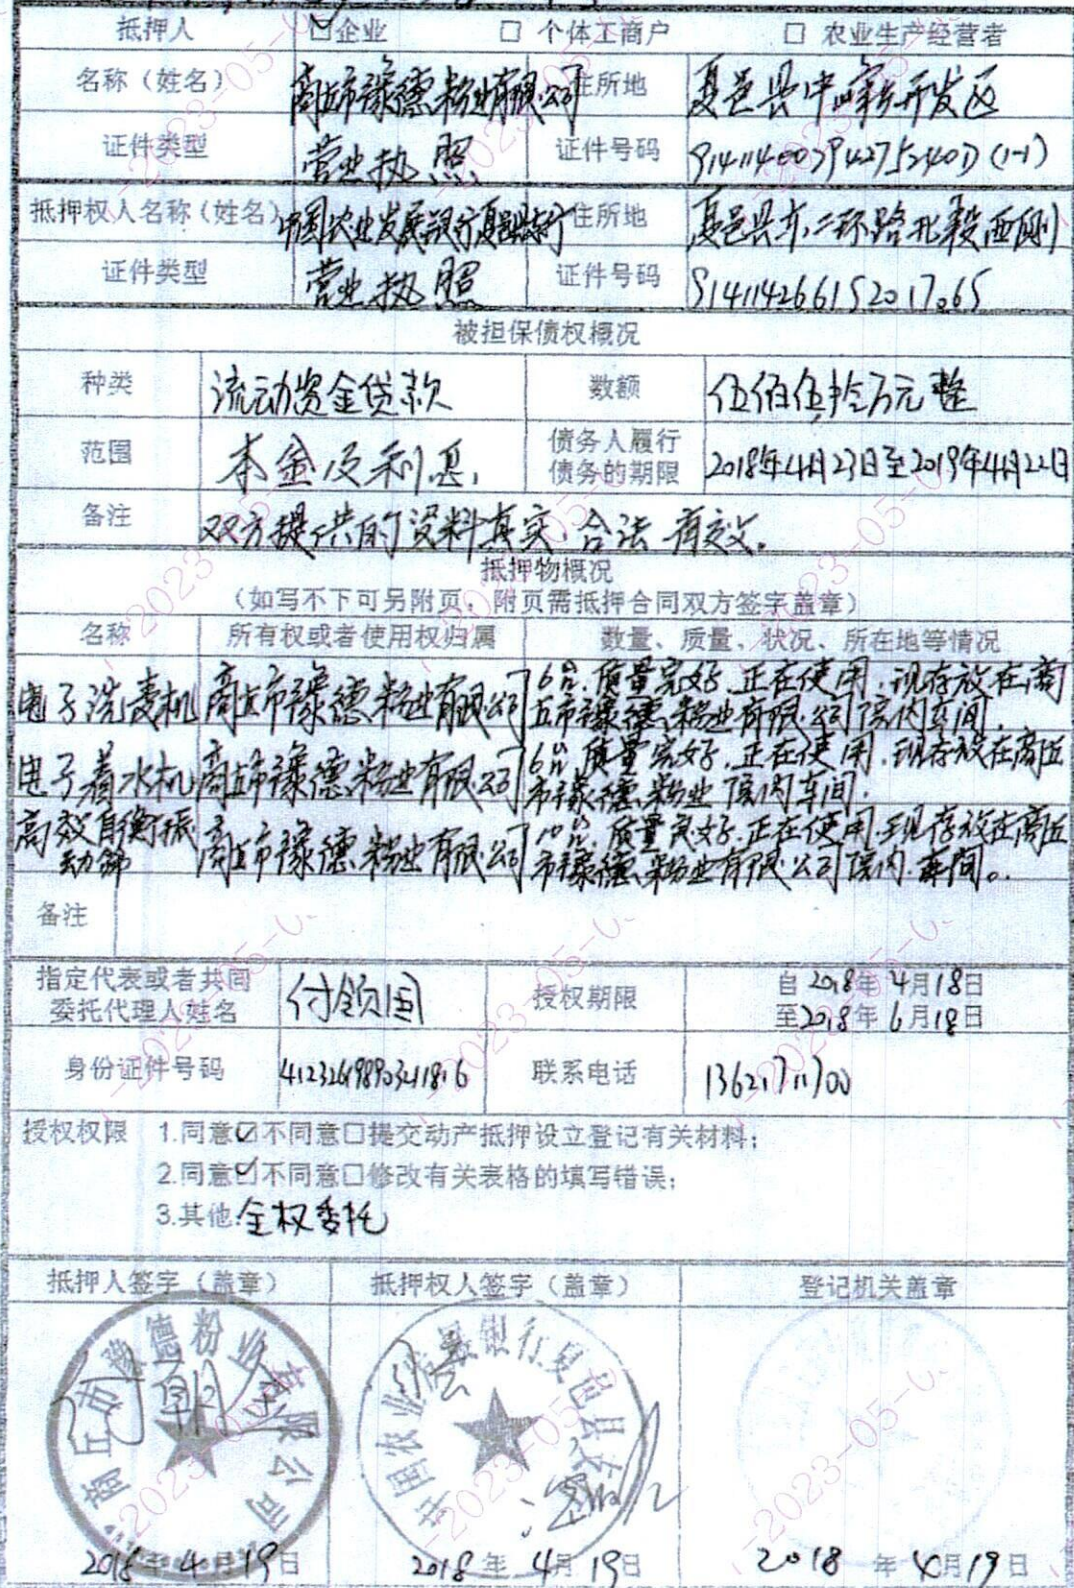 抵押人 ☑企业 □ 个体工商户 □ 农业生产经营者
名称（姓名） 商丘市豫德粉业有限公司 住所地 夏邑县中峰乡开发区
证件类型 营业执照 证件号码
抵押权人名称（姓名） 中国农业发展银行夏邑县支行 住所地 夏邑县东二环路北段西侧
证件类型 营业执照 证件号码
被担保债权概况
种类 流动资金贷款 数额 伍佰伍拾万元整
范围 本金及利息 债务人履行
债务的期限 2018年4月23日至2019年4月22日
备注 双方提供的资料真实、合法、有效。
抵押物概况
（如写不下可另附页，附页需抵押合同双方签字盖章）
名称 所有权或者使用权归属 数量、质量、状况、所在地等情况
电子洗麦机 商丘市豫德粉业有限公司 6台.质量完好.正在使用.现存放在商
丘市豫德粉业有限公司院内车间.
电子着水机 商丘市豫德粉业有限公司 6台.质量完好.正在使用.现存放在商丘
市豫德粉业院内车间.
高效自衡振
动筛 商丘市豫德粉业有限公司 10台.质量良好.正在使用.现存放在商丘
市豫德粉业有限公司院内.车间。
备注
指定代表或者共同
委托代理人姓名 付领国 授权期限 自2018年4月18日
至2018年6月18日
身份证件号码 联系电话
授权权限 1.同意☑不同意□提交动产抵押设立登记有关材料；
2.同意☑不同意□修改有关表格的填写错误；
3.其他:全权委托
抵押人签字（盖章） 抵押权人签字（盖章） 登记机关盖章
商丘市豫德粉业有限公司
中国农业发展银行夏邑县支行
2018年4月19日 2018年4月19日 2018年4月19日